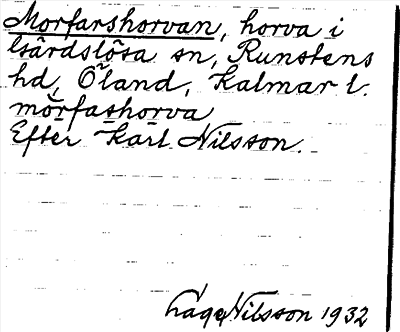 Morfarshorvan, horva i
Gårdslösa sn, Runstens
hd, Öland, Kalmar l.
mòrfashorva
Efter Karl Nilsson.
Låge Nilsson 1932